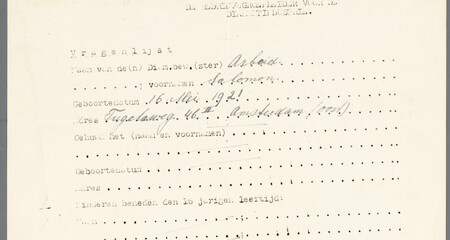 Vragenlijst
Naam van de(n) Diam.bew.(ster) Arbeid
; voornamen Salomon
Geboortedatum 16 Mei 1921
Adres Tugelaweg 46 II Amsterdam (oost)
Gehuwd met (naam en voornamen)
Geboortedatum
Adres
Kinderen beneden den 16 jarigen leeftijd:
Naam